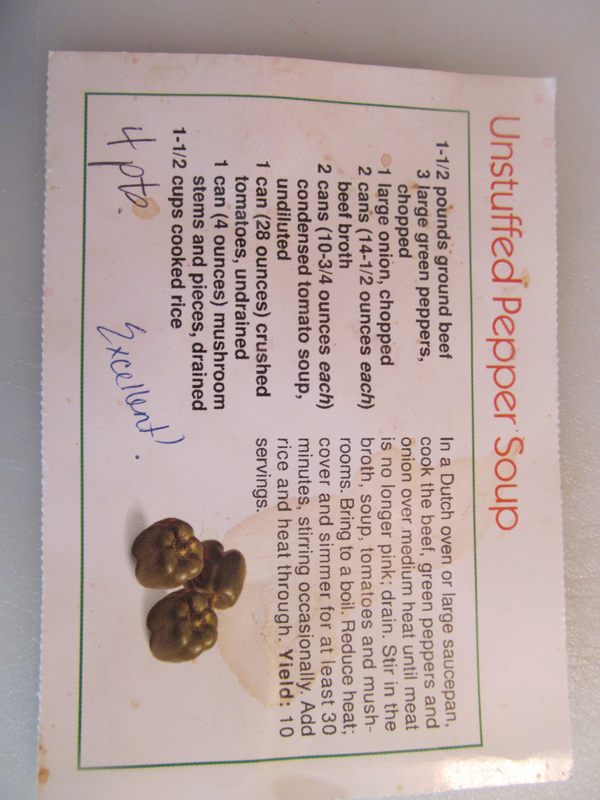 Unstuffed Pepper Soup
1-1/2 pounds ground beef
3 large green peppers,
chopped
1 large onion, chopped
2 cans (14-1/2 ounces each)
beef broth
2 cans (10-3/4 ounces each)
condensed tomato soup,
undiluted
1 can (28 ounces) crushed
tomatoes, undrained
1 can (4 ounces) mushroom
stems and pieces, drained
1-1/2 cups cooked rice
4 pts.
Excellent!
In a Dutch oven or large saucepan,
cook the beef, green peppers and
onion over medium heat until meat
is no longer pink; drain. Stir in the
broth, soup, tomatoes and mush-
rooms. Bring to a boil. Reduce heat;
cover and simmer for at least 30
minutes, stirring occasionally. Add
rice and heat through. Yield: 10
servings.